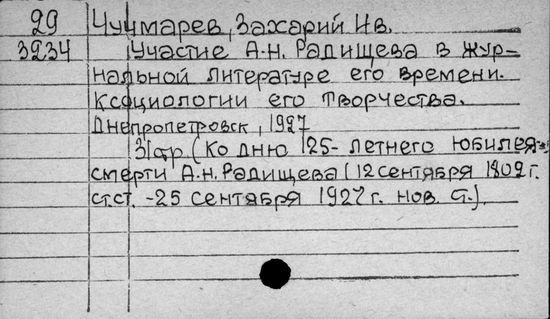 29 Чучмарев, Захарий Ив.
3234 Участие А.Н. Радищева в жур-
нальной литературе его времени.
К социологии его творчества.
Днепропетровск, 1927
31 стр. (Ко дню 125-летнего юбилея
смерти А.Н. Радищева (12 сентября 1802 г.
ст.ст. - 25 сентября 1927 г. нов. ст.).